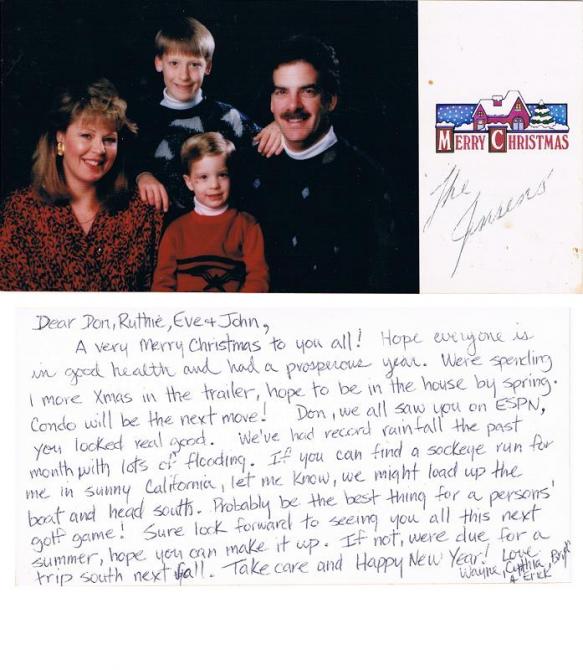 MERRY CHRISTMAS
The
Jensens'
Dear Don, Ruthie, Eve + John,
A very Merry Christmas to you all! Hope everyone is
in good health and had a prosperous year. Were spending
1 more Xmas in the trailer, hope to be in the house by spring.
Condo will be the next move! Don, we all saw you on ESPN,
you looked real good. We've had record rainfall the past
month with lots of flooding. If you can find a sockeye run for
me in sunny California, let me know, we might load up the
boat and head south. Probably be the best thing for a persons'
golf game! Sure look forward to seeing you all this next
summer, hope you can make it up. If not, were due for a
trip south next fall. Take care and Happy New Year! Love
Wayne, Cynthia,
+ Erik